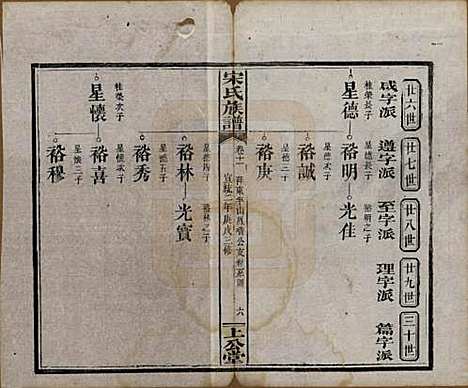 廿六世 廿七世 廿八世 廿九世 三十世
咸字派 遵字派 至字派 理字派 篇字派
星德 桂榮長子
裕明 星德長子
光佳 裕明之子
裕誠 星德二子
裕庚 星德三子
宋氏族譜
卷十一
宣統二年庚戌三修
六
上公堂
裕林 星德四子
光寶 裕林之子
裕秀 星德五子
星懷 桂榮次子
裕喜 星懷長子
裕穆 星懷二子